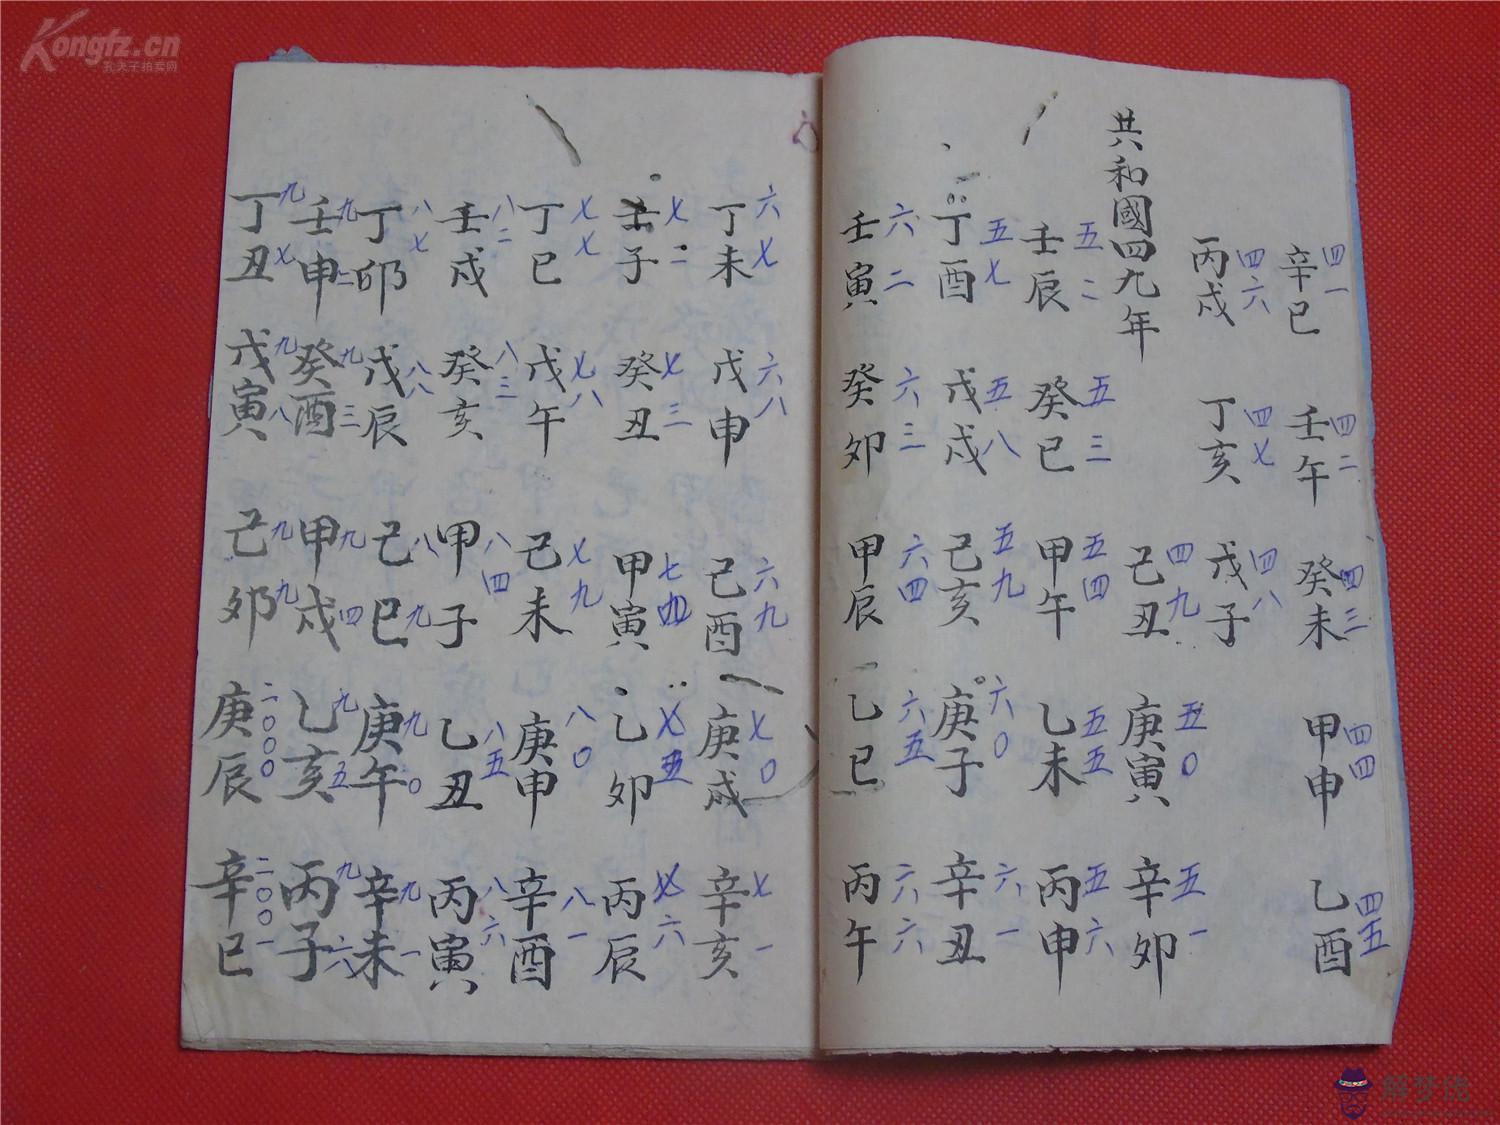 Kongfz.cn
孔夫子拍卖网
辛巳 四一 壬午 四二 癸未 四三 甲申 四四 乙酉 四五
丙戌 四六 丁亥 四七 戊子 四八
共和國四九年 己丑 四九 庚寅 五〇 辛卯 五一
壬辰 五二 癸巳 五三 甲午 五四 乙未 五五 丙申 五六
丁酉 五七 戊戌 五八 己亥 五九 庚子 六〇 辛丑 六一
壬寅 六二 癸卯 六三 甲辰 六四 乙巳 六五 丙午 六六
丁未 六七 戊申 六八 己酉 六九 庚戌 七〇 辛亥 七一
壬子 七二 癸丑 七三 甲寅 七四 乙卯 七五 丙辰 七六
丁巳 七七 戊午 七八 己未 七九 庚申 八〇 辛酉 八一
壬戌 八二 癸亥 八三 甲子 八四 乙丑 八五 丙寅 八六
丁卯 八七 戊辰 八八 己巳 八九 庚午 九〇 辛未 九一
壬申 九二 癸酉 九三 甲戌 九四 乙亥 九五 丙子 九六
丁丑 九七 戊寅 九八 己卯 九九 庚辰 二〇〇〇 辛巳 二〇〇一
解梦佬